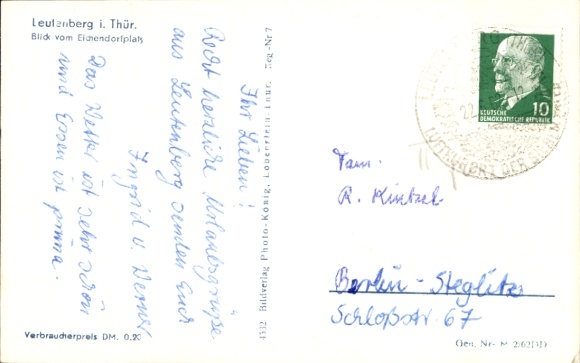 Leutenberg i. Thür.
Blick vom Eichendorfplatz
Ihr Lieben!
Recht herzliche Urlaubsgrüße
aus Leutenberg senden Euch
Ingrid u. Werner
Das Wetter ist sehr schön
und Essen ist prima.
Verbraucherpreis DM. 0,20
4332 Bildverlag Photo-König, Lobenstein-Thür. Reg-Nr 7
DEUTSCHE
DEMOKRATISCHE REPUBLIK
10
22.
Fam.
R. Kintzel
Berlin - Steglitz
Schloßstr. 67
Gen. Nr. M 2/62DD